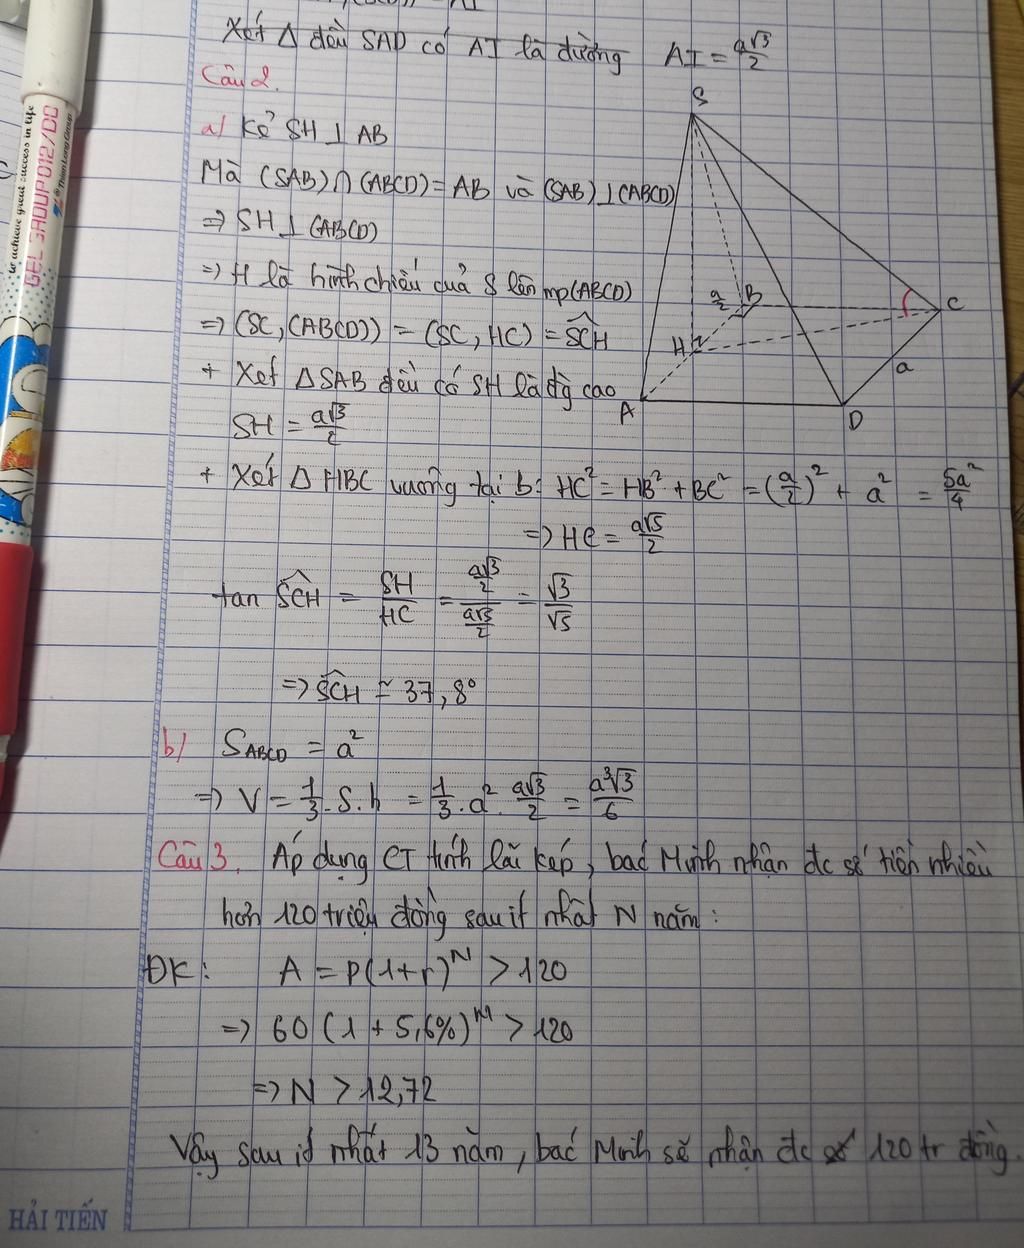 Xét Δ đều SAD có AI là đường AI = a√3/2
Câu 2.
a/ Kẻ SH ⊥ AB
Mà (SAB) ∩ (ABCD) = AB và (SAB) ⊥ (ABCD)
=> SH ⊥ (ABCD)
=> H là hình chiếu của S lên mp(ABCD)
=> (SC, (ABCD)) = (SC, HC) = SCH
+ Xét ΔSAB đều có SH là đg cao
SH = a√3/2
+ Xét Δ HBC vuông tại b: HC² = HB² + BC² = (a/2)² + a² = 5a²/4
=> HC = a√5/2
tan SCH = SH/HC = (a√3/2)/(a√5/2) = √3/√5
=> SCH ≃ 37,8°
b/ SABCD = a²
=> V = 1/3 . S . h = 1/3 . a² . a√3/2 = a³√3/6
Câu 3. Áp dụng CT tính lãi kép, bác Minh nhận đc số tiền nhiều
hơn 120 triệu đồng sau ít nhất N năm:
ĐK: A = P(1+r)^N > 120
=> 60 (1 + 5,6%)^N > 120
=> N > 12,72
Vậy sau ít nhất 13 năm, bác Minh sẽ nhận đc 120 tr đồng.
S
a/2
B
C
H
a
A
D
HẢI TIẾN
to achieve great success in life
GEL SADUP012/DO
Thien Long Group